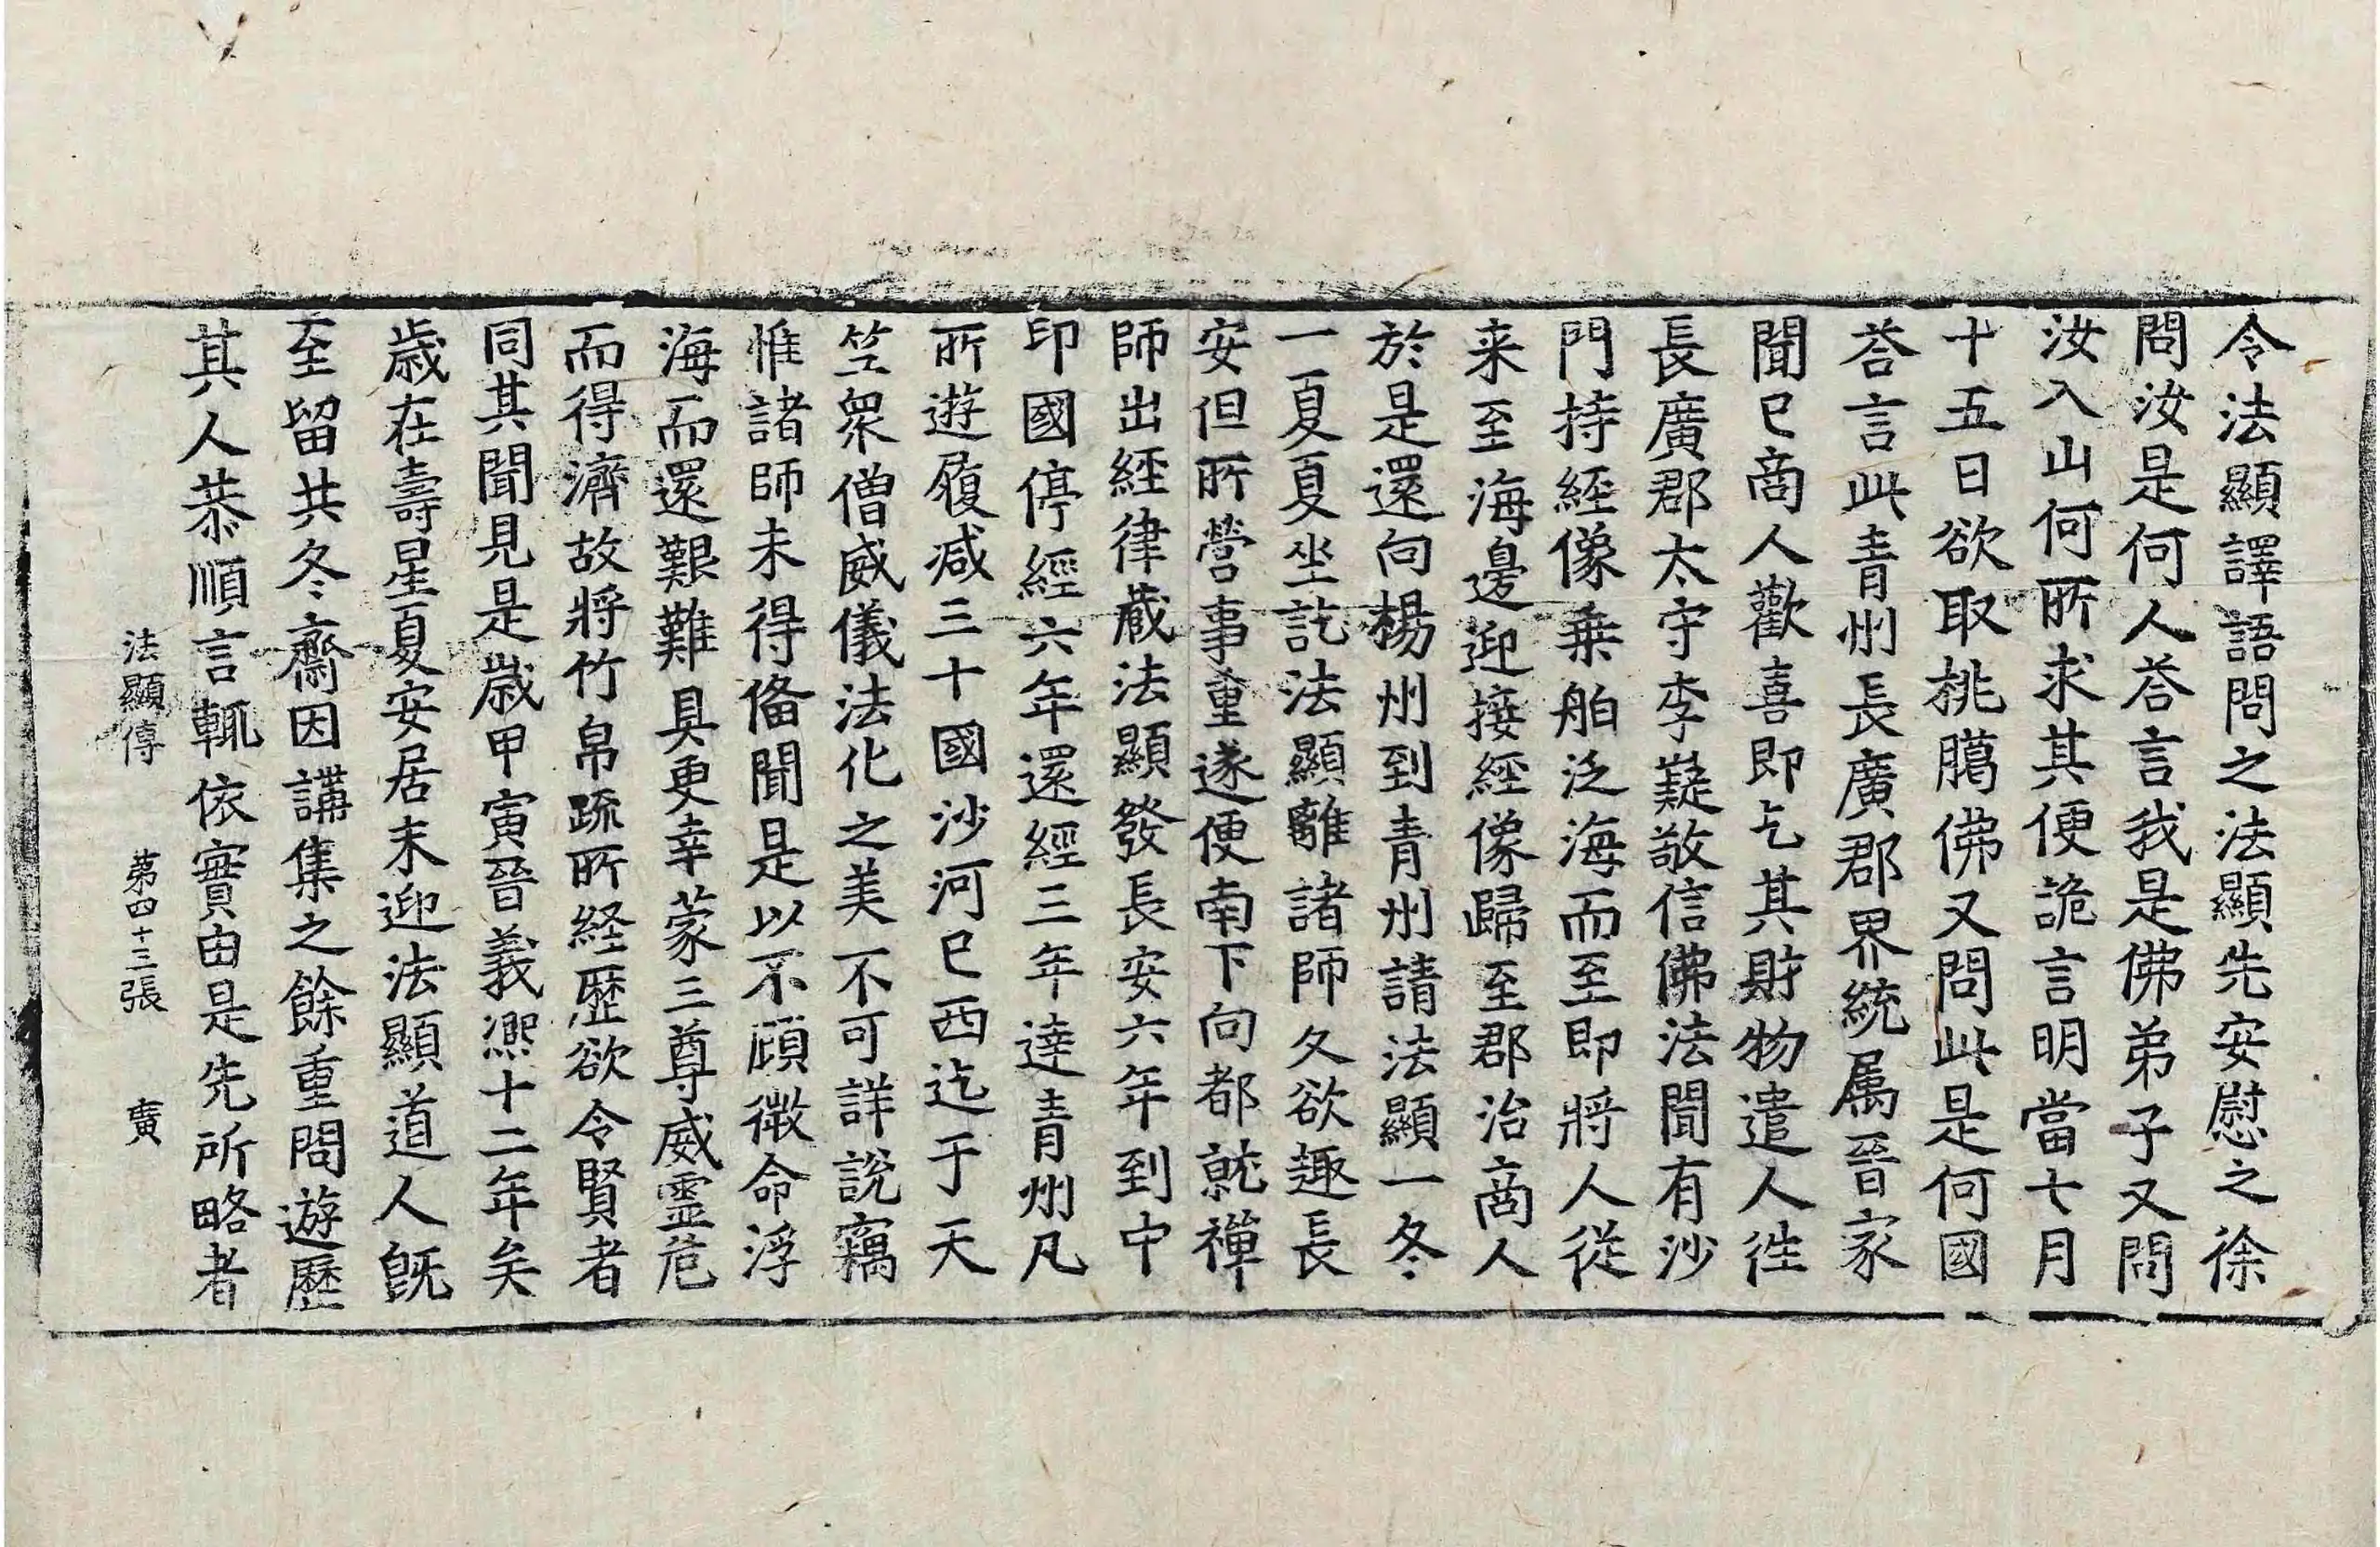 令法顯譯語問之法顯先安慰之徐
問汝是何人荅言我是佛弟子又問
汝入山何所求其便詭言明當七月
十五日欲取桃臈佛又問此是何國
荅言此青州長廣郡界統属晉家
聞已商人歡喜即乞其財物遣人往
長廣郡太守李嶷敬信佛法聞有沙
門持經像乗舶泛海而至即將人從
来至海邊迎接經像歸至郡治商人
於是還向楊州到青州請法顯一冬
一夏夏坐訖法顯離諸師久欲趣長
安但所營事重遂便南下向都就禪
師出經律藏法顯發長安六年到中
印國停經六年還經三年達青州凡
所遊履减三十國沙河已西迄于天
竺衆僧威儀法化之美不可詳說竊
惟諸師未得俻聞是以不顧微命浮
海而還艱難具更幸蒙三尊威靈危
而得濟故將竹帛疏所經歷欲令賢者
同其聞見是歲甲寅晉義熈十二年矣
歲在壽星夏安居末迎法顯道人旣
至留共冬齋因講集之餘重問遊歷
其人恭順言輒依實由是先所略者
法顯傳 第四十三張 廣